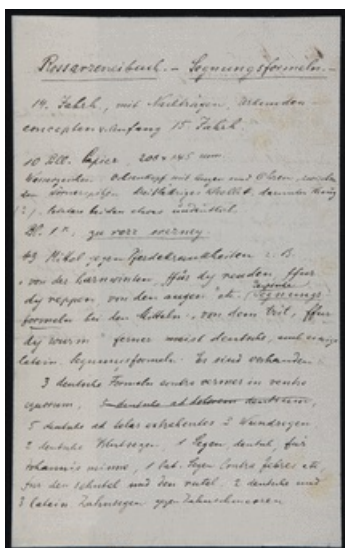 Rossarzneibuch. – Segnungsformeln. –
14. Jahrh., mit Nachträgen, Urkunden-
concepten v. Anfang 15. Jahrh.
10 Bll. Papier, 208 x 145 mm.
Wasserzeichen: Ochsenkopf mit Augen und Ohren, zwischen
den Hörnerspitzen
(?). beiden etwas undeutlich.
Bl. 1r. zu ross erzney.
43 Mittel gegen Pferdekrankheiten z. B.
„von der harnwinten, ffür dy reuden, ffur
dy reppen, von den augen" etc. Segnungs-
formeln bei den Mitteln „von dem
dy würm" ferner meist deutsche, auch einige
latein. Segnungsformeln. Es sind vorhanden
3 deutsche Formeln contra vermes in ventre
equorum, 3 deutsche ad dolorem dentium,
5 deutsche ad 2 Wundsegen
2 deutsche Blutsegen, 1 Segen deutsch, für
Johannis minne, 1 lat. Segen contra febres etc.
für den und den 2 deutsche und
3 latein Zahnsegen gegen Zahnschmerzen